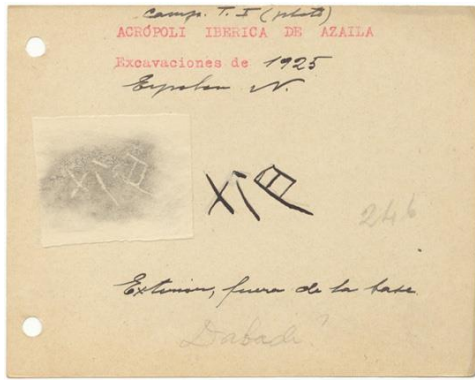 Camp. T. I (plato)
ACRÓPOLI IBERICA DE AZAILA
Excavaciones de 1925
N.
246
Exterior, fuera de la base
Dabadi?